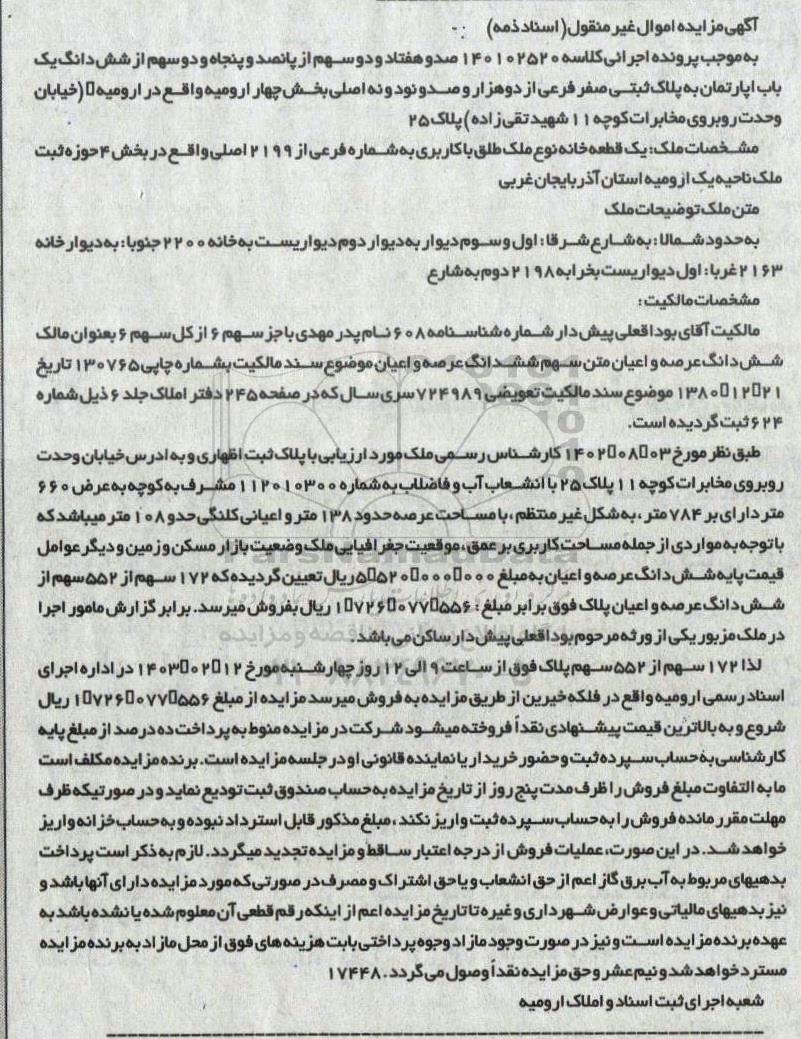 آگهی مزایده اموال غیر منقول (اسناد ذمه)
به موجب پرونده اجرائی کلاسه ۱۴۰۱۰۲۵۲۰ صدو هفتاد و دو سهم از پانصد و پنجاه و دو سهم از شش دانگ یک
باب اپارتمان به پلاک ثبتی صفر فرعی از دو هزار و صد و نود و نه اصلی بخش چهار ارومیه واقع در ارومیه (خیابان
وحدت روبروی مخابرات کوچه ۱۱ شهید تقی زاده) پلاک ۲۵
مشخصات ملک: یک قطعه خانه نوع ملک طلق با کاربری به شماره فرعی از ۲۱۹۹ اصلی واقع در بخش ۴ حوزه ثبت
ملک ناحیه یک ارومیه استان آذربایجان غربی
متن ملک توضیحات ملک
به حدود شمالا: به شارع شرقا: اول و سوم دیوار به دیوار دوم دیواریست به خانه ۲۲۰۰ جنوبا: به دیوار خانه
۲۱۶۳ غربا: اول دیواریست بخرابه ۲۱۹۸ دوم به شارع
مشخصات مالکیت:
مالکیت آقای بوداقعلی پیش دار شماره شناسنامه ۶۰۸ نام پدر مهدی با جز سهم ۶ از کل سهم ۶ بعنوان مالک
شش دانگ عرصه و اعیان متن سهم ششدانگ عرصه و اعیان موضوع سند مالکیت بشماره چاپی ۱۳۰۷۶۵ تاریخ
۱۳۸۰ ۱۲ ۲۱ موضوع سند مالکیت تعویضی ۷۲۴۹۸۹ سری سال که در صفحه ۲۴۵ دفتر املاک جلد ۶ ذیل شماره
۶۲۴ ثبت گردیده است.
طبق نظر مورخ ۱۴۰۲ ۰۸ ۰۳ کارشناس رسمی ملک مورد ارزیابی با پلاک ثبت اظهاری و به ادرس خیابان وحدت
روبروی مخابرات کوچه ۱۱ پلاک ۲۵ با انشعاب آب و فاضلاب به شماره ۱۱۲۰۱۰۳۰۰ مشرف به کوچه به عرض ۶۶۰
متر دارای بر ۷۸۴ متر، به شکل غیر منتظم، با مساحت عرصه حدود ۱۳۸ متر و اعیانی کلنگی حدو ۱۰۸ متر میباشد که
با توجه به مواردی از جمله مساحت کاربری بر عمق، موقعیت جغرافیایی ملک وضعیت بازار مسکن و زمین و دیگر عوامل
قیمت پایه شش دانگ عرصه و اعیان به مبلغ ۵ ۵۲۰ ۰۰۰ ۰۰۰ ریال تعیین گردیده که ۱۷۲ سهم از ۵۵۲ سهم از
شش دانگ عرصه و اعیان پلاک فوق برابر مبلغ: ۱ ۷۲۶ ۰۷۷ ۵۵۶ ریال بفروش میرسد. برابر گزارش مامور اجرا
در ملک مزبور یکی از ورثه مرحوم بوداقعلی پیش دار ساکن می باشد.
لذا ۱۷۲ سهم از ۵۵۲ سهم پلاک فوق از ساعت ۹ الی ۱۲ روز چهارشنبه مورخ ۱۴۰۳ ۰۲ ۱۲ در اداره اجرای
اسناد رسمی ارومیه واقع در فلکه خیرین از طریق مزایده به فروش میرسد مزایده از مبلغ ۱ ۷۲۶ ۰۷۷ ۵۵۶ ریال
شروع و به بالاترین قیمت پیشنهادی نقداً فروخته میشود شرکت در مزایده منوط به پرداخت ده درصد از مبلغ پایه
کارشناسی به حساب سپرده ثبت و حضور خریدار یا نماینده قانونی او در جلسه مزایده است. برنده مزایده مکلف است
ما به التفاوت مبلغ فروش را ظرف مدت پنج روز از تاریخ مزایده به حساب صندوق ثبت تودیع نماید و در صورتیکه ظرف
مهلت مقرر مانده فروش را به حساب سپرده ثبت واریز نکند، مبلغ مذکور قابل استرداد نبوده و به حساب خزانه واریز
خواهد شد. در این صورت، عملیات فروش از درجه اعتبار ساقط و مزایده تجدید میگردد. لازم به ذکر است پرداخت
بدهیهای مربوط به آب برق گاز اعم از حق انشعاب و یا حق اشتراک و مصرف در صورتی که مورد مزایده دارای آنها باشد و
نیز بدهیهای مالیاتی و عوارض شهرداری و غیره تا تاریخ مزایده اعم از اینکه رقم قطعی آن معلوم شده یا نشده باشد به
عهده برنده مزایده است و نیز در صورت وجود مازاد وجوه پرداختی بابت هزینه های فوق از محل مازاد به برنده مزایده
مسترد خواهد شد و نیم عشر و حق مزایده نقداً وصول می گردد. ۱۷۴۴۸
شعبه اجرای ثبت اسناد و املاک ارومیه